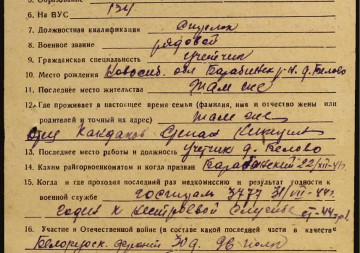 6. На ВУС 134
7. Должностная квалификация стрелок
8. Военное звание рядовой
9. Гражданская специальность
10. Место рождения Новосиб. обл Барабинск. р-н. д. Белово
11. Последнее место жительства Там же
12. Где проживает в настоящее время семья (фамилия, имя и отчество жены или
родителей и точный их адрес) Там же
отец Степан
13. Последнее место работы и должность д. Белово
14. Каким райгорвоенкоматом и когда призван Барабинский 22/XII-41г
15. Когда и где проходил последний раз медкомиссию и результат годности к
военной службе госпиталь 3477 31/VII-44г
годен к нестроевой службе
16. Участие в Отечественной войне (в составе какой последней части в качестве
Белорусск. фронт